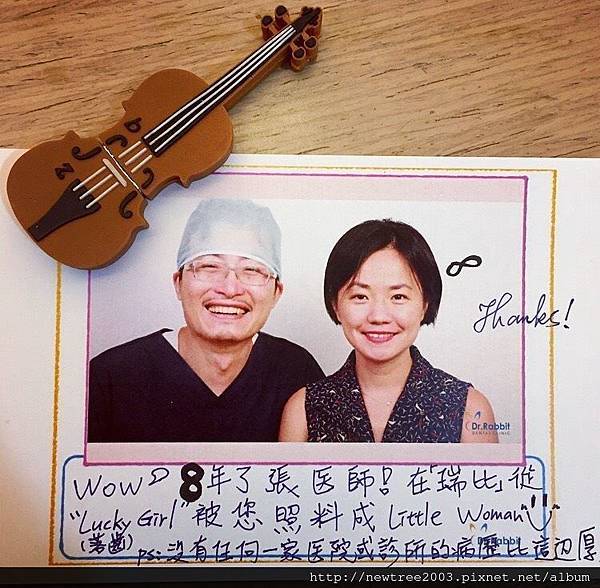 ∞
Thanks!
Dr.Rabbit
DENTAL CLINIC
WOW 8年了張医師!在「瑞比」從
"Lucky Girl"被您照料成 Little Woman
Dr.Rabbit
ps:沒有任何一家医院或診所的病歷比這边厚
http://newtree2003.pixnet.net/album